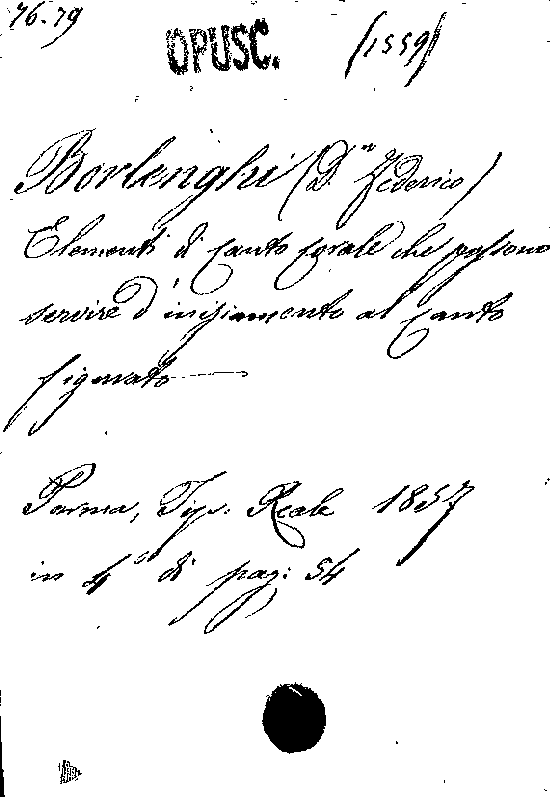 76.79
OPUSC. (1559)
Borlenghi (D.n Federico)
Elementi di Canto Corale che possono
servire d'iniziamento al Canto
figurato
Parma, Tip. Reale 1857
in 4° di pag: 54